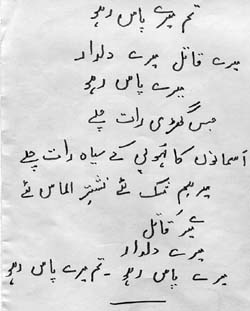 تم میرے پاس رہو
میرے قاتل میرے دلدار
میرے پاس رہو
جس گھڑی رات چلے
آسمانوں کا لہو پی کے سیاہ رات چلے
مرہم مشک لئے نشترِ الماس لئے
میرے قاتل
میرے دلدار
میرے پاس رہو - تم میرے پاس رہو